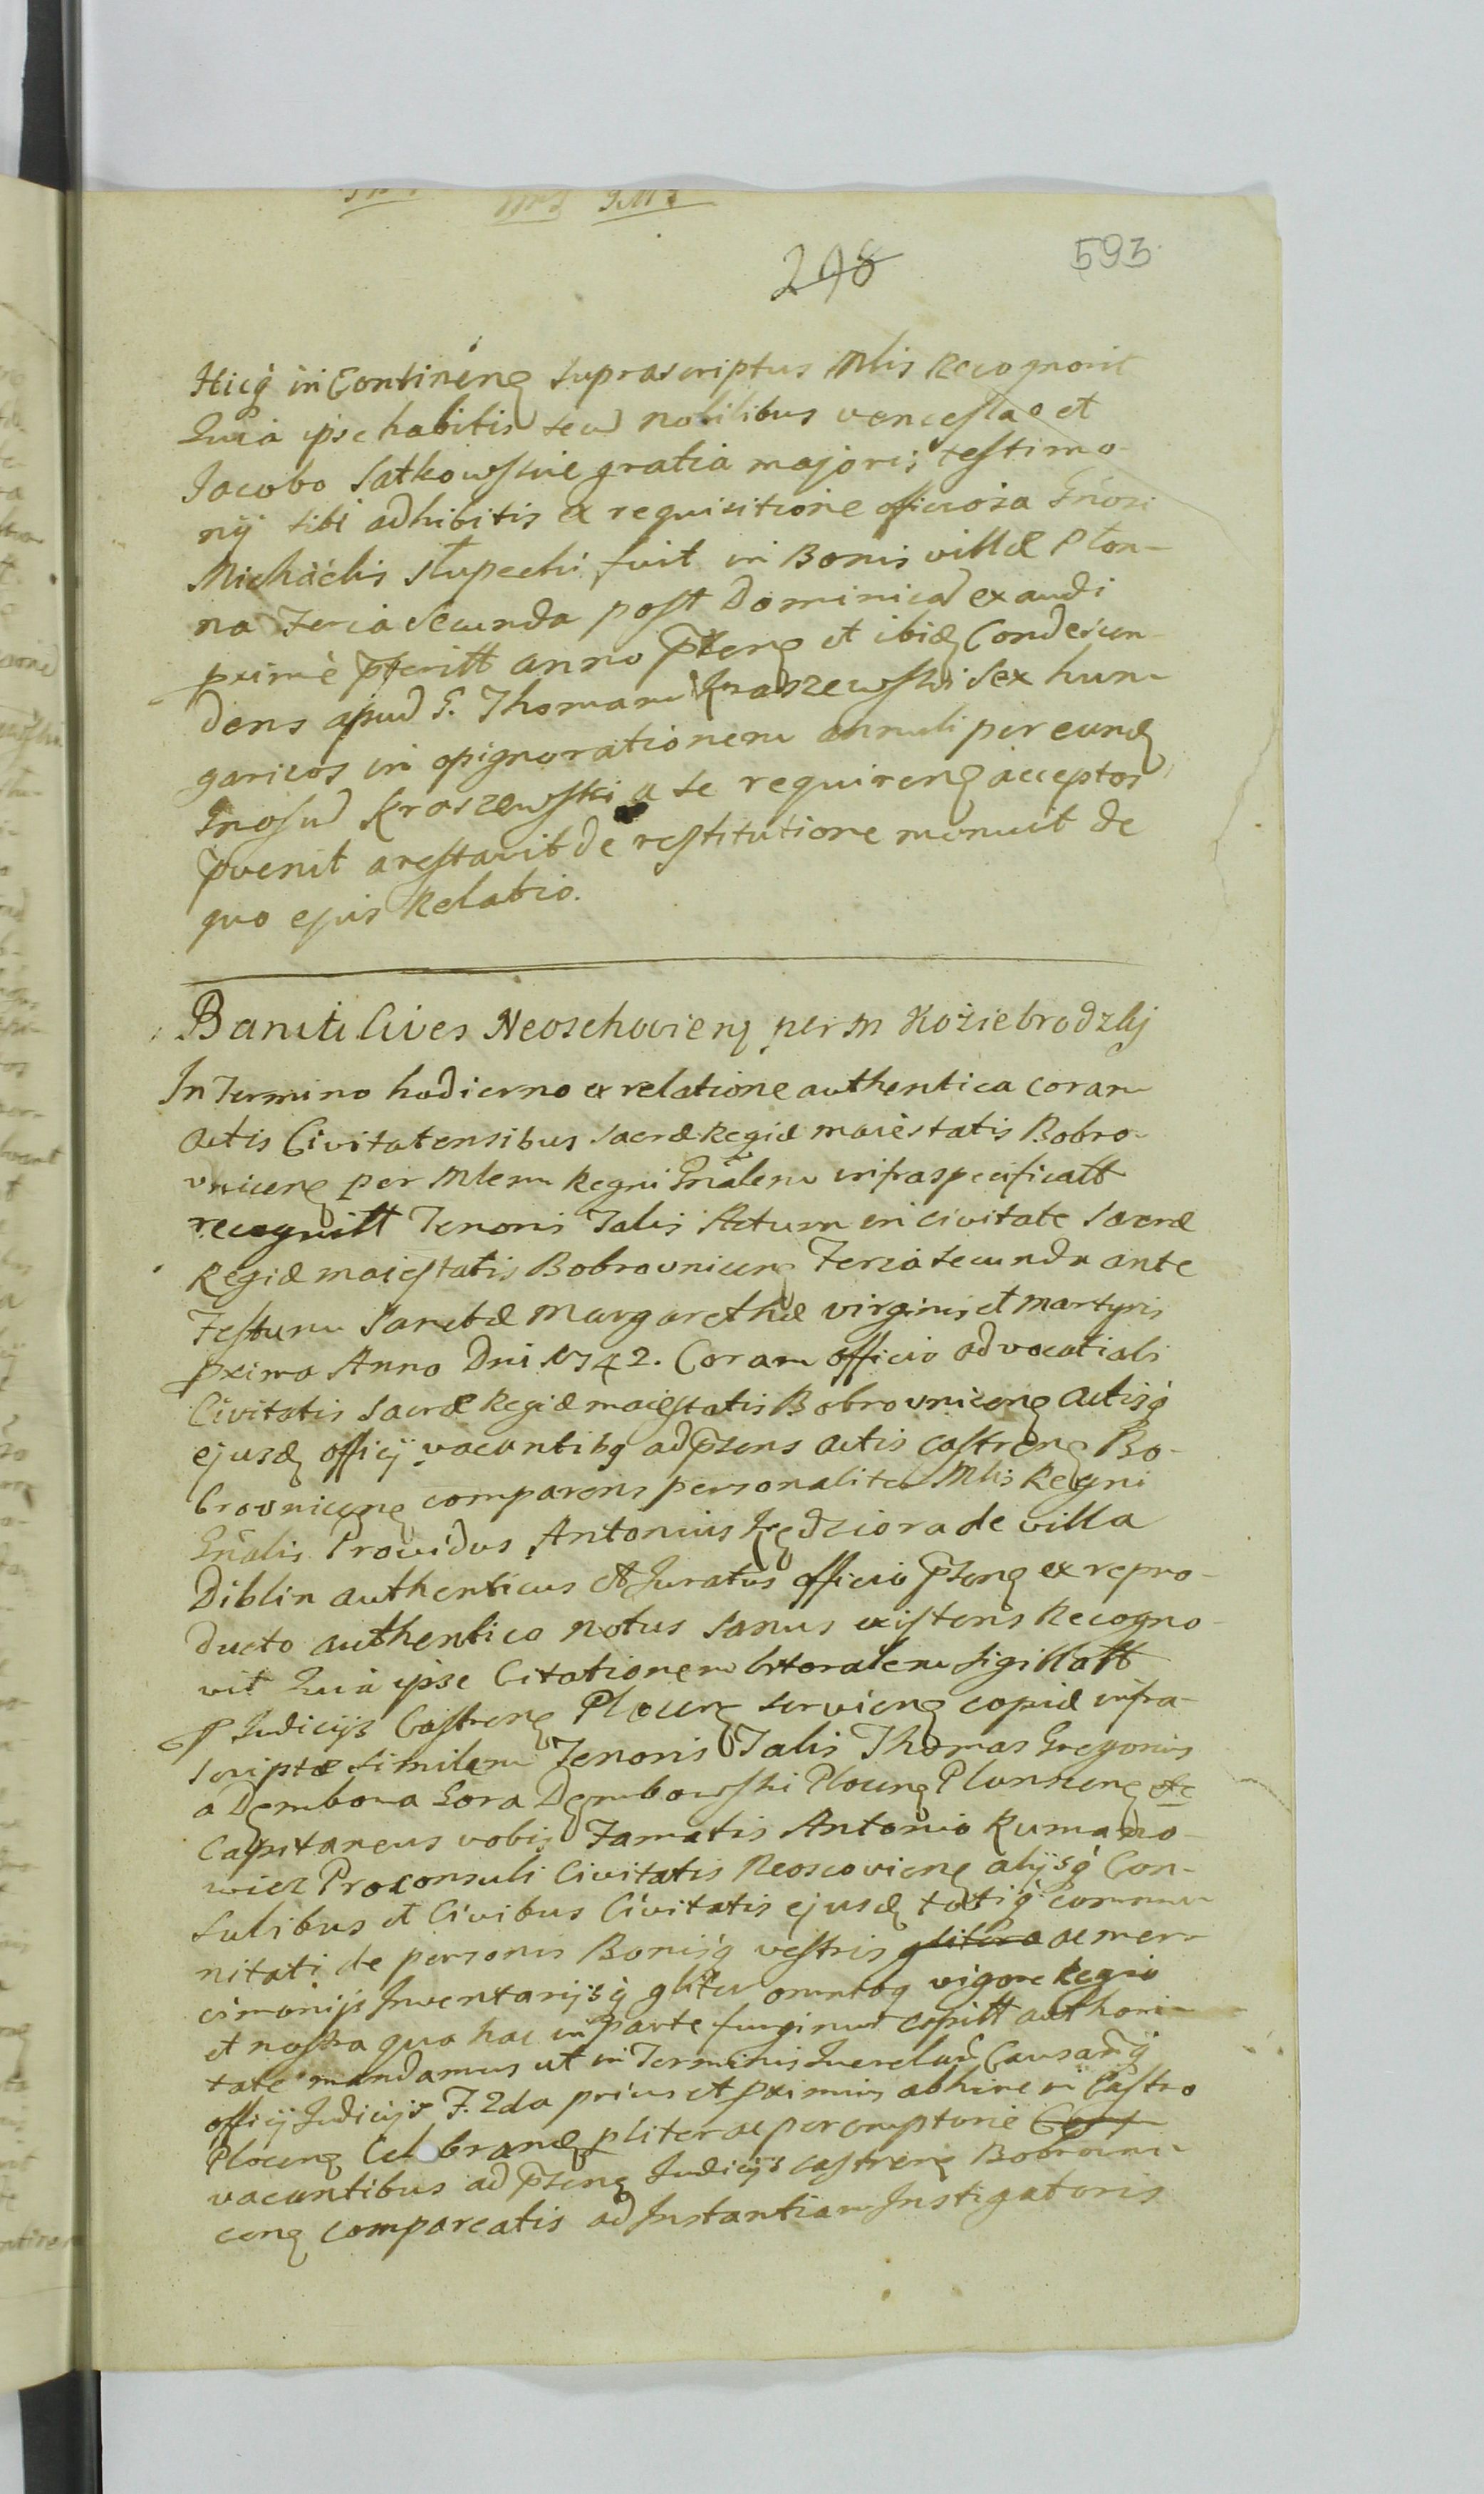 298
593
Hicq́ in Continenꝫ suprascriptus Mlis Recognovit
Quia ipse habitis secū nobilibus venceslao et
Jacobo Satkowskie gratia majoris testimo-
nÿ sibi adhibitis ex requisitione officiosa Gn̄osi
Michäelis Słupecki fuit in Bonis villæ Płon-
na Feria Secunda post Dominicā exaudi
proximè p̄teritt anno p̄senꝫ et ibidꝫ Condescen-
dens apud G. Thomam Kraszewski Sex hun-
garicos in opignorationem annuli per eundꝫ
Gnosū Kraszewski a se requirenꝫ acceptos
p̄venit arestavit de restitutione monuit de
quo ejus Relatio.
Baniti Cives Neoschovienꝫ per M Koziebrodzkj
In Termino hodierno ex relatione authentica coram
actis Civitatensibus Sacræ Regiæ maiestatis Bobro-
vnicenꝫ per Mlem Regni Gn̄alem infraspecificatt
recognitt Tenoris Talis Actum in civitate Sacræ
Regiæ maiestatis Bobrovnicenꝫ Feria secunda ante
Festum Sanctæ Margarethæ virginis et martyris
pxima Anno Dni 1742. Coram officio advocatiali
Civitatis Sacræ Regiæ maiestatis Bobrovnicenꝫ actisq́
ejusdꝫ officÿ vacantibꝫ ad p̄sens actis castrenꝫ Bo-
brovnicenꝫ comparens personaliter Mlis Regni
Gn̄alis Providus Antonius Kędziora de villa
Diblin authenticus et Juratus officio p̄senꝫ ex repro-
ducto authentico notus sanus existens Recogno-
vit Quia ipse Citationem lrtoralem sigillatt
p Judicÿs Castrenꝫ Plocenꝫ servienꝫ copiæ infra-
scriptæ similem Tenoris Talis Thomas Gregorius
a Dęmbowa Gora Dęmbowski Plocenꝫ Plunscenꝫ etc
Capitaneus vobis Famatis Antonio Rumano-
wicz Proconsuli Civitatis Neoscovienꝫ alÿsq́ Con-
sulibus et Civibus Civitatis ejusdꝫ totiq́ commu-
nitati de personis Bonisq́ vestris glitera ac mer-
cimonÿs Inventarÿsq́ gliter omnibꝫ vigore Regia
et nostra qua hac in parte fungimur capitt authori-
tate mandamus ut in Terminis Querelar̄ Causar̄q́
officÿ Judicÿs F. 2da prius et pximius abhinc in Castro
Plocenꝫ Celebrandꝫ pliter ac peremptorie Cast
vacantibus ad p̄senꝫ Judicÿs castrenꝫ Bobrovni-
cenꝫ compareatis ad Instantiam Instigatoris